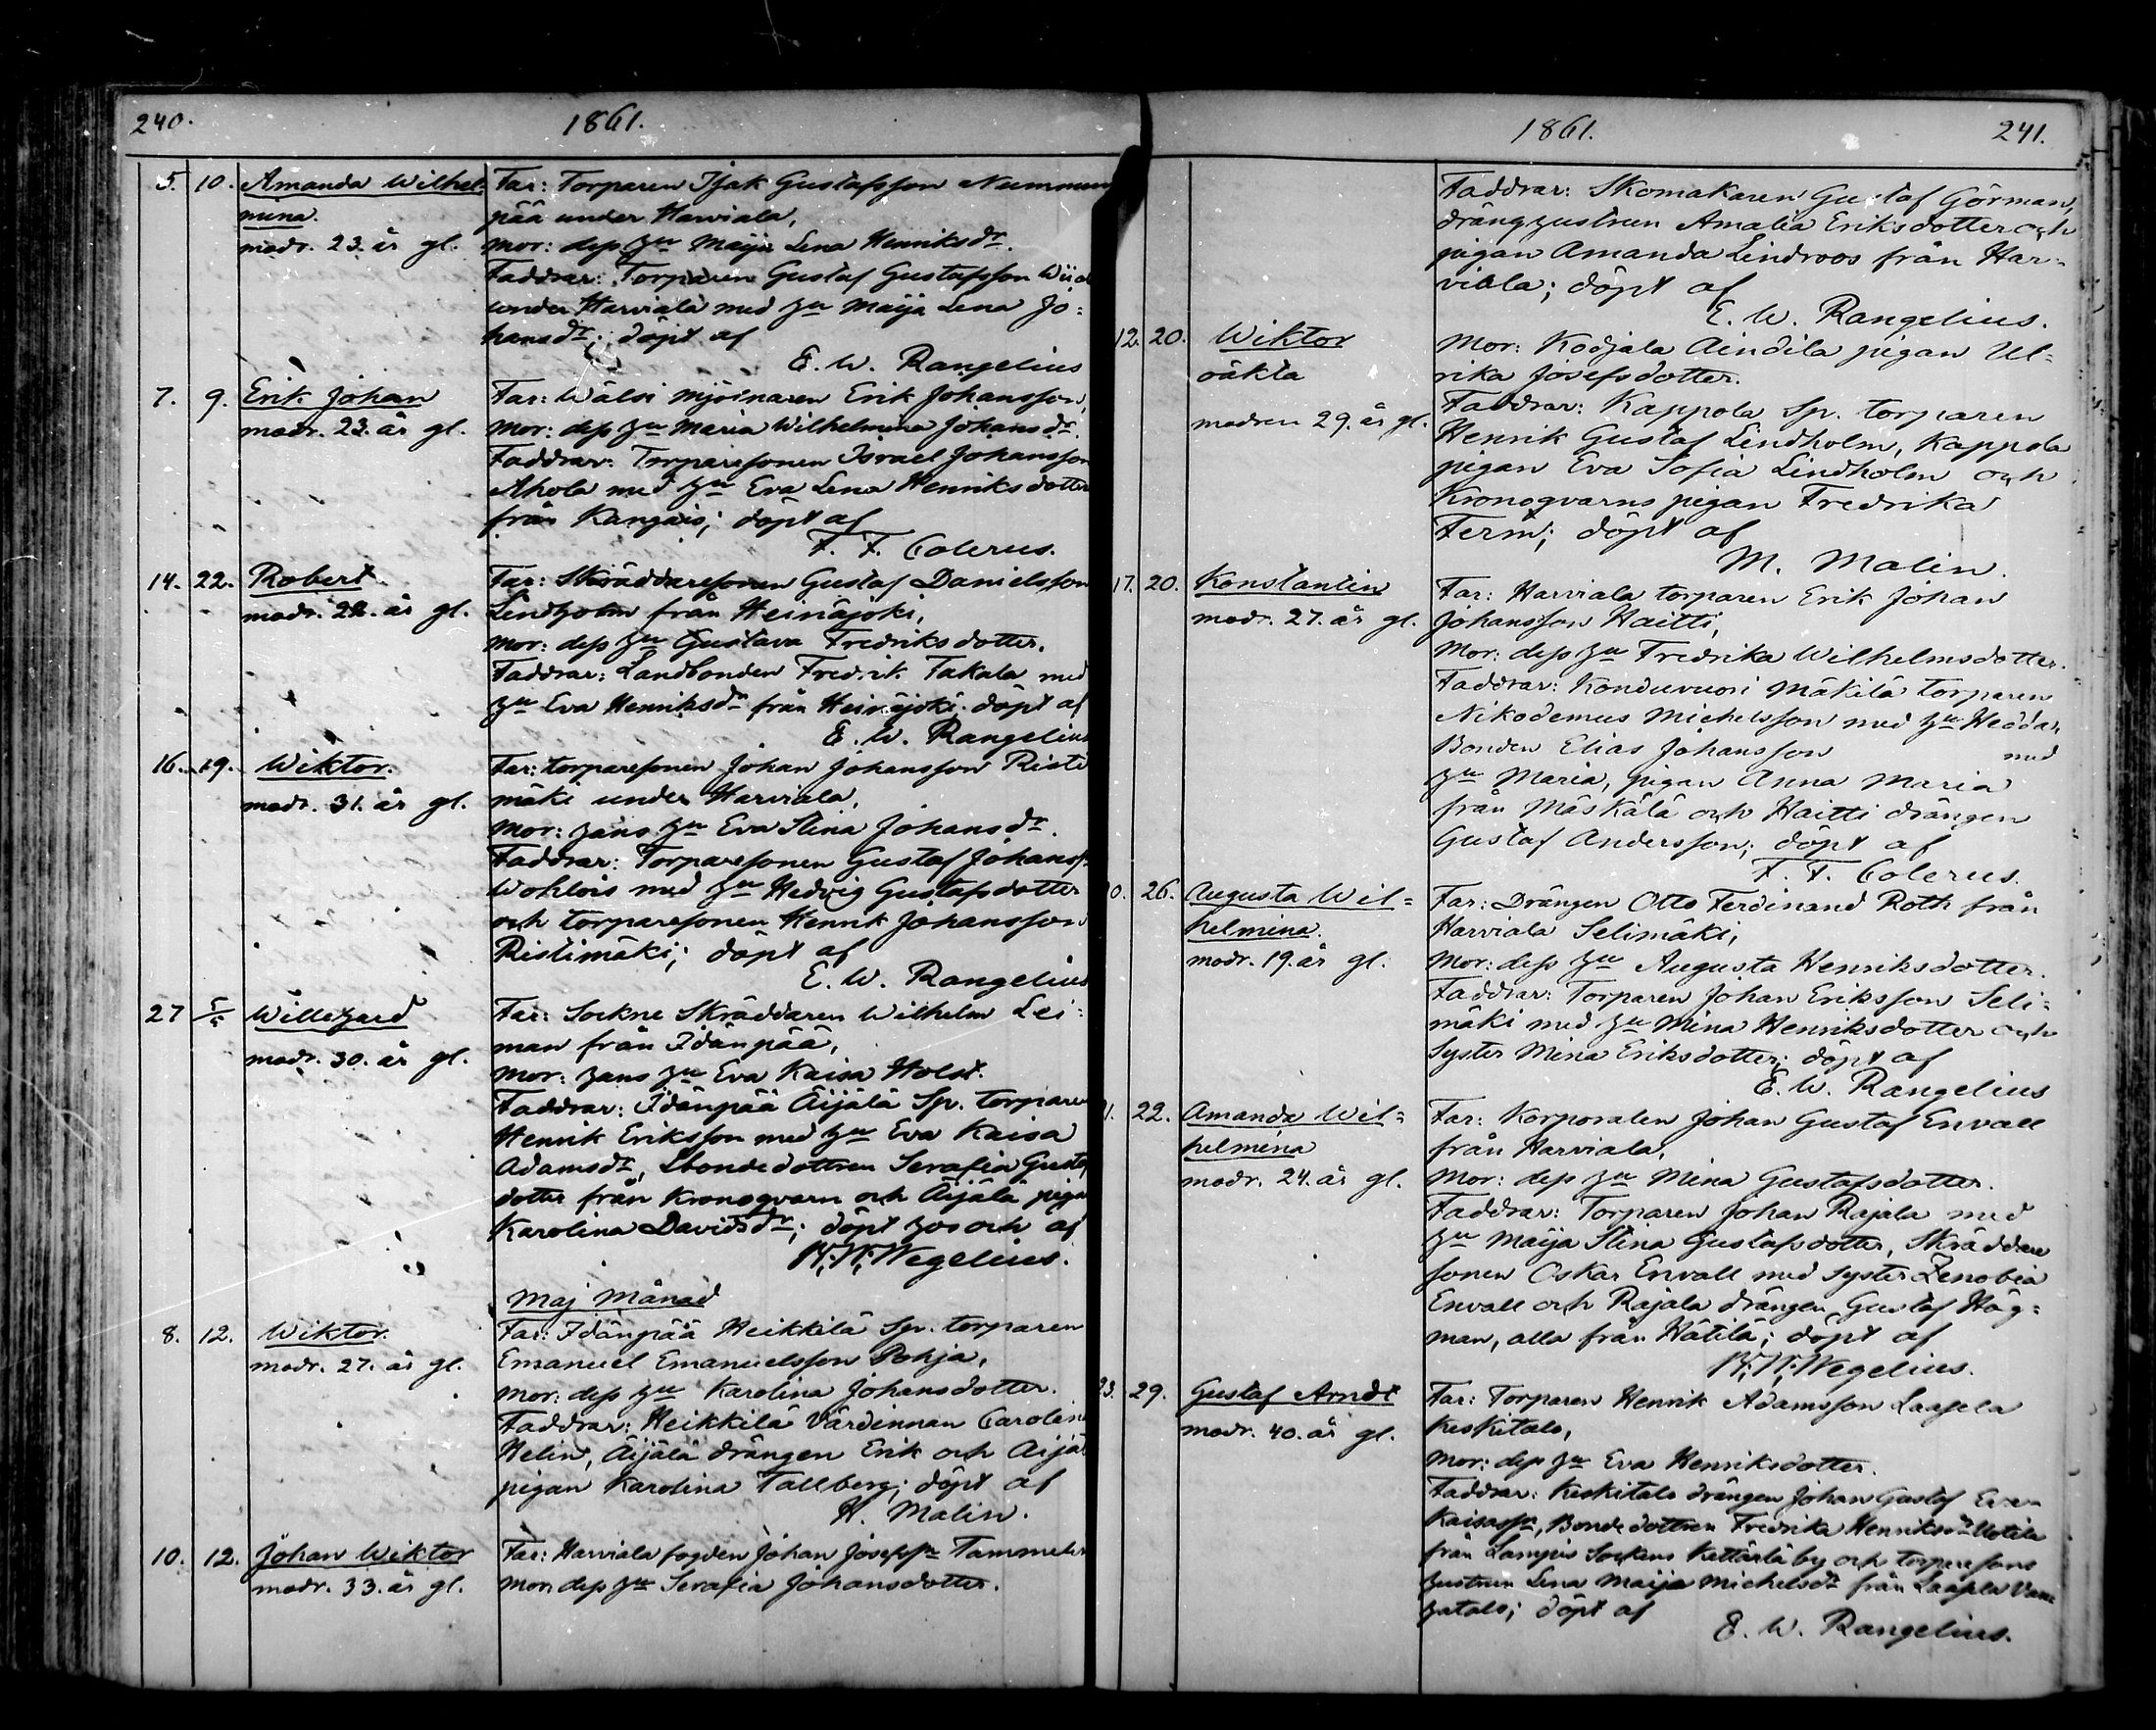 240.
1861.
5. 10. Amanda Wilhel- Far: Torparen Isak Gustafsson Nummen
mina. pää under Harviala,
modr. 23. år gl. Mor: dess hu Maija Lena Henriksdr.
Faddrar: Torparen Gustaf Gustafsson
under Harviala med hu Maija Lena Jo=
hansdr; döpt af
E. W. Rangelius
7. 9. Erik Johan Far: Wälsi mjölnaren Erik Johansson,
modr. 23. år gl. Mor: dess hu Maria Wilhelmina Johansdr.
Faddrar: Torparesonen Israel Johansson
Ahola med hu Eva Lena Henriksdotter
från Kangais; döpt af
F. F. Colerus.
14. 22. Robert Far: Skräddaresonen Gustaf Danielsson
modr. 22. år gl. Lindholm från Heinäjoki,
Mor: dess hu Gustava Fredriksdotter.
Faddrar: Landbonden Fredrik Takala med
hu Eva Henriksdr från Heinäjoki; döpt af
E. W. Rangelius
16. 19. Wiktor. Far: torparesonen Johan Johansson Risti
modr. 31. år gl. mäki under Harviala,
Mor: hans hu Eva Stina Johansdr.
Faddrar: Torparesonen Gustaf Johanss.
Wohlois med hu Hedvig Gustafsdotter
och torparesonen Henrik Johansson
Ristimäki; döpt af
E. W. Rangelius
27 5/5 Willehard Far: Sockne Skräddaren Wilhelm Lei=
modr. 30. år gl. man från Idänpää,
Mor: hans hu Eva Kaisa Holst.
Faddrar: Idänpää Äijälä Sp. torparen
Henrik Eriksson med hu Eva Kaisa
Adamsdr, Lbondedottren Serafia Gustaf
dotter från Kronoqvarn och Äijälä pigan
Karolina Davidsdr; döpt hos och af
K. W. Wegelius.
Maj Månad
8. 12. Wiktor. Far: Idänpää Heikkilä Sp. torparen
modr. 27. år gl. Emanuel Emanuelsson Pohja,
Mor: dess hu Karolina Johansdotter.
Faddrar: Heikkilä Värdinnan Carolina
Helin, Äijälä drängen Erik och Äijäl
pigan Karolina Tallberg; döpt af
H. Malin.
10. 12. Johan Wiktor Far: Harviala fogden Johan Josefssn Tammelin
modr. 33. år gl. Mor: dess hu Serafia Johansdotter.
1861. 241.
Faddrar: Skomakaren Gustaf Görman,
dränghustrun Amalia Eriksdotter och
pigan Amanda Lindroos från Har=
viala; döpt af
E. W. Rangelius.
12. 20. Wiktor Mor: Kodjala Aindila pigan Ul=
oäkta rika Josefsdotter.
modren 29. år gl. Faddrar: Kappola Sp. torparen
Henrik Gustaf Lindholm, Kappola
pigan Eva Sofia Lindholm och
Kronoqvarns pigan Fredrika
Term; döpt af
M. Malin.
17. 20. Konstantin Far: Harviala torparen Erik Johan
modr. 27. år gl. Johansson Haitti,
Mor: dess hu Fredrika Wilhelmsdotter.
Faddrar: Konduvuori Mäkilä torparen
Nikodemus Michelsson med hu Hedda,
Bonden Elias Johansson med
hu Maria, pigan Anna Maria
från Mäskälä och Haitti drängen
Gustaf Andersson; döpt af
F. F. Colerus.
0. 26. Augusta Wil= Far: Drängen Otto Ferdinand Roth från
helmina. Harviala Selimäki,
modr. 19. år gl. Mor: dess hu Augusta Henriksdotter.
Faddrar: Torparen Johan Eriksson Seli=
mäki med hu Mina Henriksdotter och
Syster Mina Eriksdotter; döpt af
E. W. Rangelius
1. 22. Amanda Wil= Far: Korporalen Johan Gustaf Envall
helmina från Harviala,
modr. 24. år gl. Mor: dess hu Mina Gustafsdotter.
Faddrar: Torparen Johan Rajala med
hu Maija Stina Gustafsdotter, Skräddare
sonen Oskar Envall med Syster Zenobia
Envall och Rajala drängen Gustaf Häg=
man, alla från Hätilä; döpt af
K. W. Wegelius.
23. 29. Gustaf Arndt Far: Torparen Henrik Adamsson Laapela
modr. 40. år gl. Keskitalo,
Mor: dess hu Eva Henriksdotter.
Faddrar: Keskitalo drängen Johan Gustaf Eva
Kaisassn, Bondedottren Fredrika Henriksdr Uotila
från Lampis Sockens Kattärlä by och torparesons
hustrun Lena Maija Michelsdr från Laapla Van
hatalo; döpt af
E. W. Rangelius.